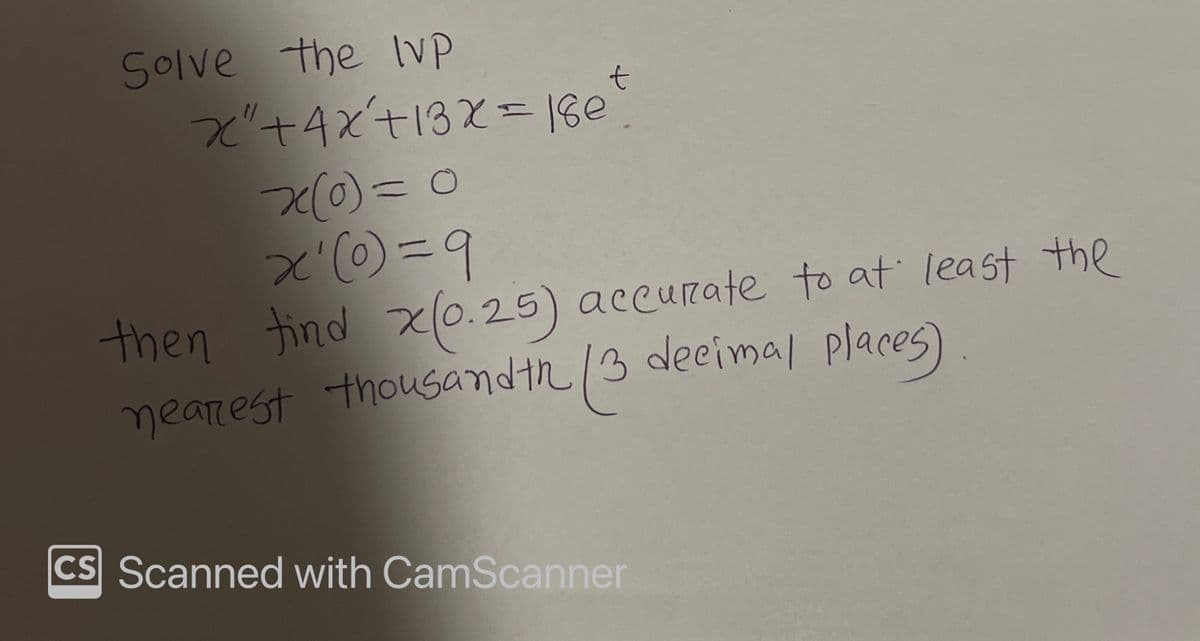 Solve the IVP
x"+4x'+13x=18e^t.
x(0)=0
x'(0)=9
then find x(0.25) accurate to at least the
nearest thousandth (3 decimal places).
CS Scanned with CamScanner